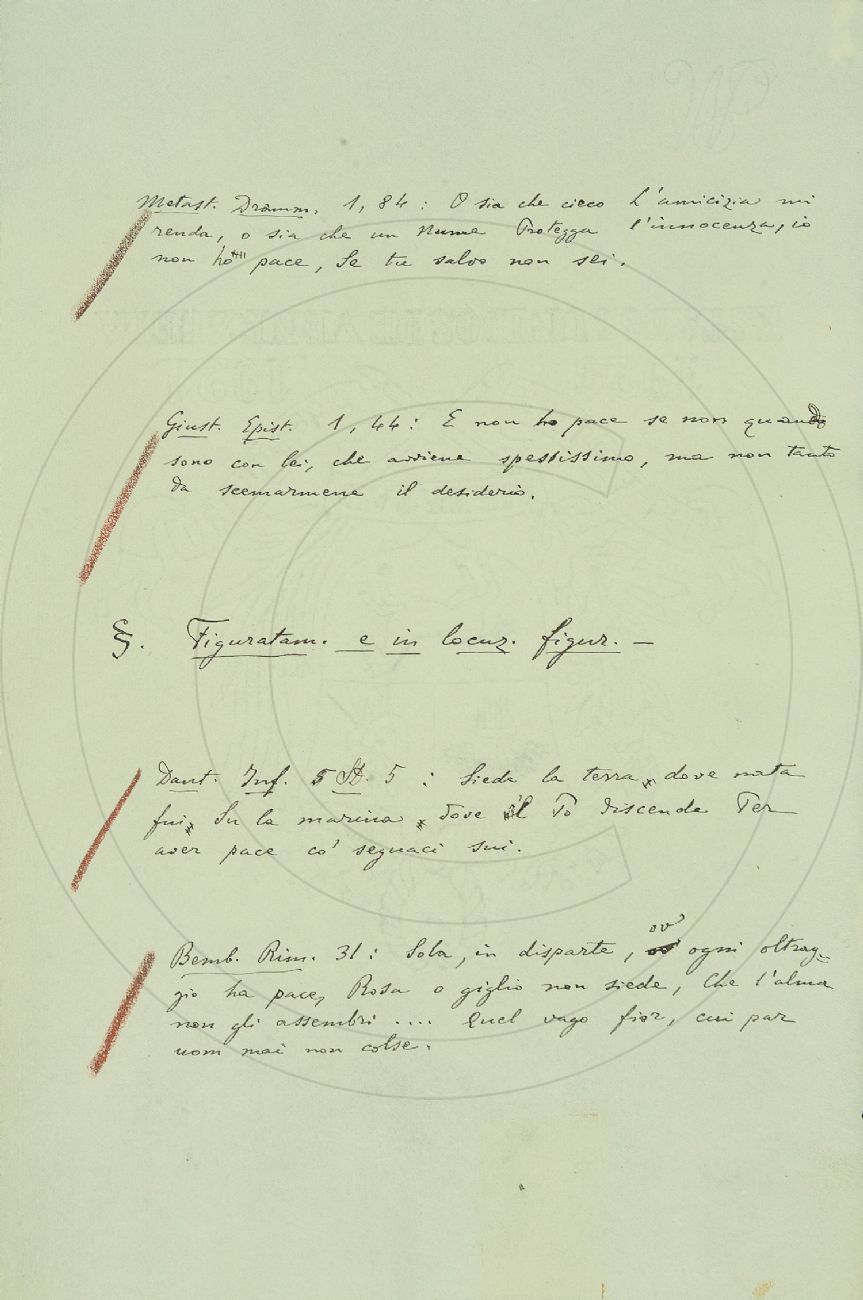 Metast. Dramm. 1, 84: O sia che cieco L'amicizia mi
renda, o sia che un Nume Protegga l'innocenza, io
non ho pace, Se tu salvo non sei.
Giust. Epist. 1, 44: E non ho pace se non quando
sono con lei, che avviene spessissimo, ma non tanto
da scemarmene il desiderio.
§. Figuratam. e in locuz. figur. —
Dant. Inf. 5 St. 5: Siede la terra, dove nata
fui, Su la marina, dove il Po discende Per
aver pace co' seguaci sui.
Bemb. Rim. 31: Sola, in disparte, ov' ogni oltrag-
gio ha pace, Rosa o giglio non siede, Che l'alma
non gli assembri .... Quel vago fior, cui par
uom mai non colse.